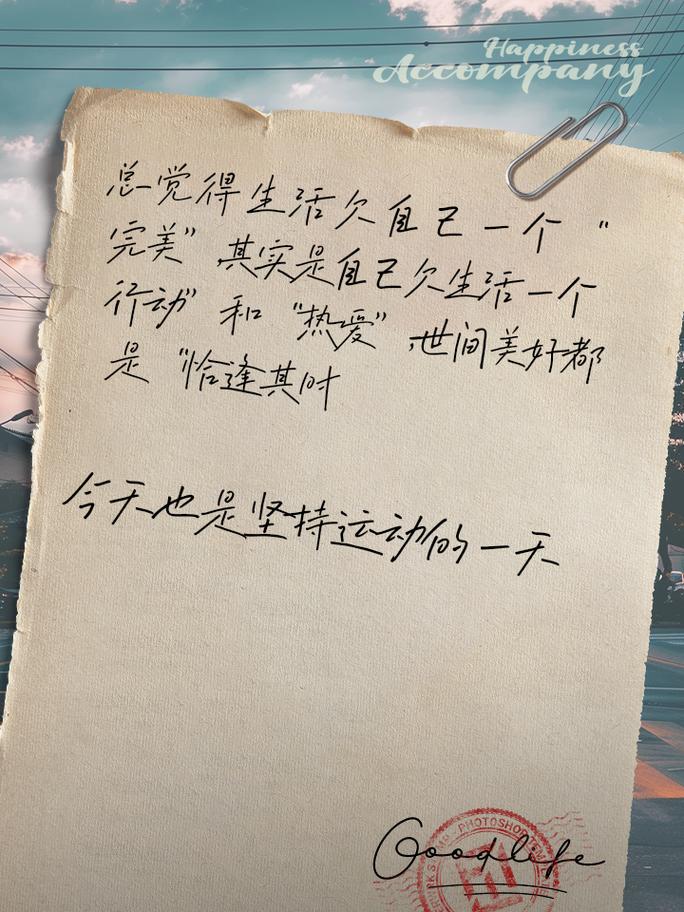 Happiness
Accompany
总觉得生活欠自己一个“
完美”其实是自己欠生活一个
行动”和“热爱”,世间美好都
是“恰逢其时
今天也是坚持运动的一天
PHOTOSHOP
Goodlife